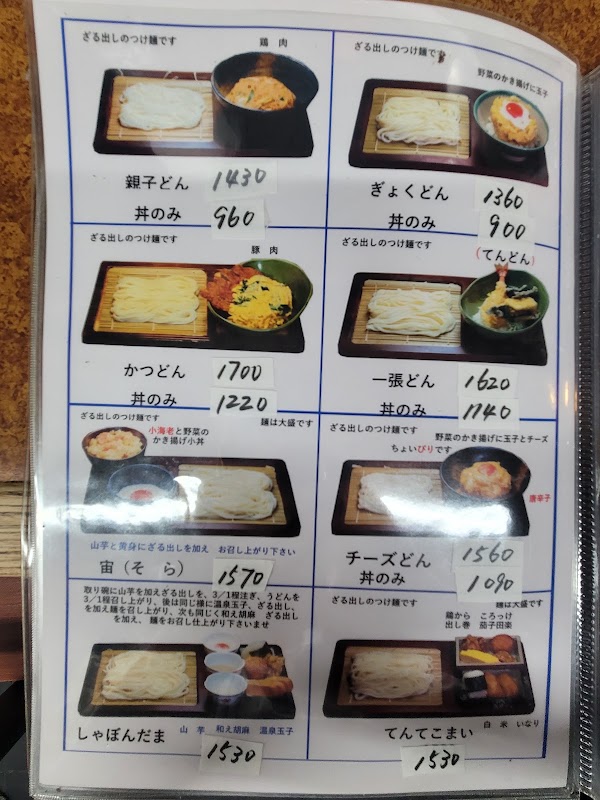 ざる出しのつけ麺です
鶏 肉
親子どん 1430
丼のみ 960
ざる出しのつけ麺です
野菜のかき揚げに玉子
ぎょくどん 1360
丼のみ 900
ざる出しのつけ麺です
豚 肉
かつどん 1700
丼のみ 1220
ざる出しのつけ麺です
(てんどん)
一張どん 1620
丼のみ 1140
ざる出しのつけ麺です
麺は大盛です
小海老と野菜の
かき揚げ小丼
山芋と黄身にざる出しを加え お召し上がり下さい
宙(そ ら) 1570
ざる出しのつけ麺です
野菜のかき揚げに玉子とチーズ
ちょいぴりです
唐辛子
チーズどん 1560
丼のみ 1090
取り碗に山芋を加えざる出しを、3/1程注ぎ、うどんを
3/1程召し上がり、後は同じ様に温泉玉子、ざる出し、
を加え麺を召し上がり、次も同じく和え胡麻 ざる出し
を加え、 麺をお召し仕上がり下さいませ
しゃぼんだま
山 芋 和え胡麻 温泉玉子
1530
ざる出しのつけ麺です
麺は大盛です
鶏から ころっけ
出し巻 茄子田楽
白 米 いなり
てんてこまい
1530